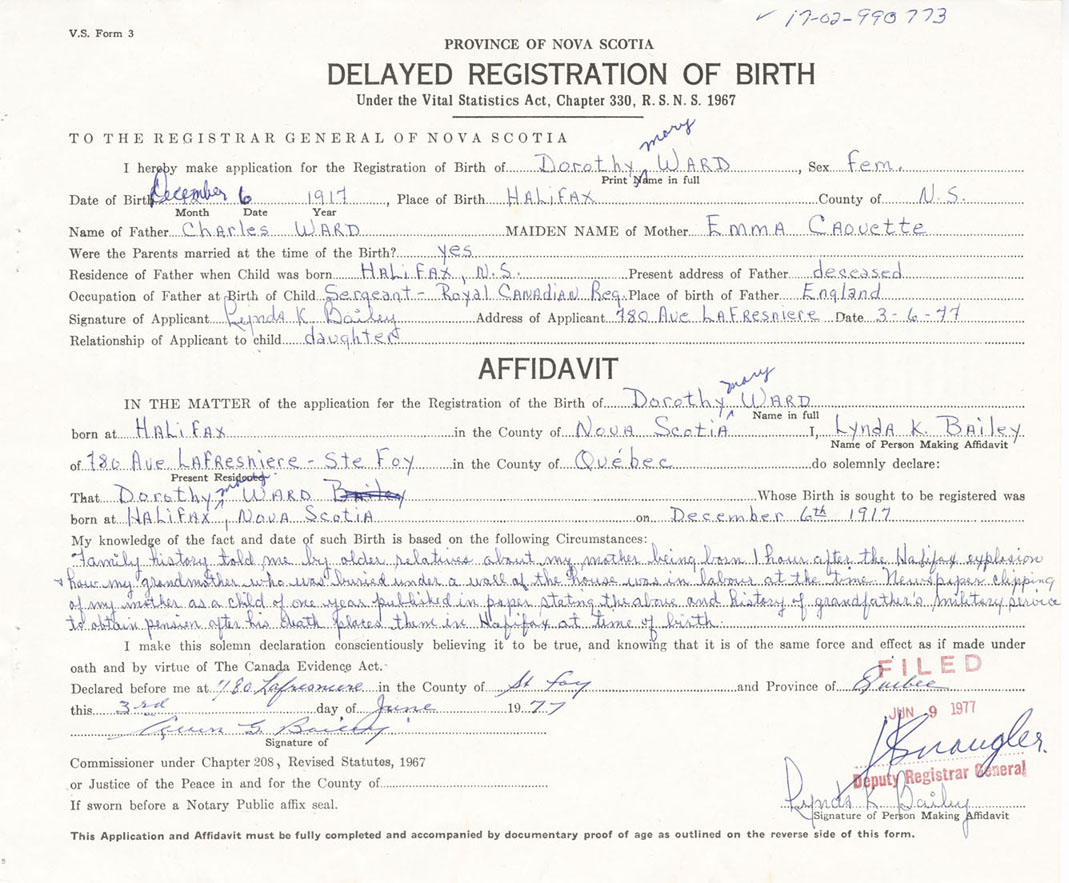 ✓ 17-02-990773
V.S. Form 3
PROVINCE OF NOVA SCOTIA
DELAYED REGISTRATION OF BIRTH
Under the Vital Statistics Act, Chapter 330, R.S.N.S. 1967
TO THE REGISTRAR GENERAL OF NOVA SCOTIA
mary
I hereby make application for the Registration of Birth of Dorothy ^ WARD, Sex Fem.
Print Name in full
Date of Birth December 6 1917, Place of Birth HALiFAX County of N.S.
Month Date Year
Name of Father Charles WARD MAIDEN NAME of Mother EMMA CAOUETTE
Were the Parents married at the time of the Birth? yes
Residence of Father when Child was born HALiFAX, N.S. Present address of Father deceased
Occupation of Father at Birth of Child Sergeant - Royal CANADiAN Reg. Place of birth of Father England
Signature of Applicant Lynda K Bailey Address of Applicant 780 Ave LAFResNiere Date 3-6-77
Relationship of Applicant to child daughter
AFFIDAVIT
mary
IN THE MATTER of the application for the Registration of the Birth of Dorothy ^ WARD
Name in full
born at HALiFAX in the County of NOVA SCOTiA I, LyNDA K. BAiLEY
Name of Person Making Affidavit
of 780 Ave LAFResNiere - Ste Foy in the County of Québec do solemnly declare:
Present Residence
mary
That Dorothy ^ WARD Bailey Whose Birth is sought to be registered was
born at HALiFAX, NOVA SCOTiA on December 6th 1917
My knowledge of the fact and date of such Birth is based on the following Circumstances:
Family history told me by older relatives about my mother being born 1 hour after the Halifax explosion
+ how my grandmother who was buried under a wall of the house was in labour at the time. Newspaper clipping
of my mother as a child of one year published in paper stating the above and history of grandfather's military service
to obtain pension after his death places them in Halifax at time of birth.
I make this solemn declaration conscientiously believing it to be true, and knowing that it is of the same force and effect as if made under
oath and by virtue of The Canada Evidence Act.
FILED
Declared before me at 780 Lafresniere in the County of St Foy and Province of Quebec
this 3rd day of June 1977
JUN 9 1977
G. Bailey
Signature of
Commissioner under Chapter 208, Revised Statutes, 1967
Deputy Registrar General
or Justice of the Peace in and for the County of
If sworn before a Notary Public affix seal.
Lynda K Bailey
Signature of Person Making Affidavit
This Application and Affidavit must be fully completed and accompanied by documentary proof of age as outlined on the reverse side of this form.